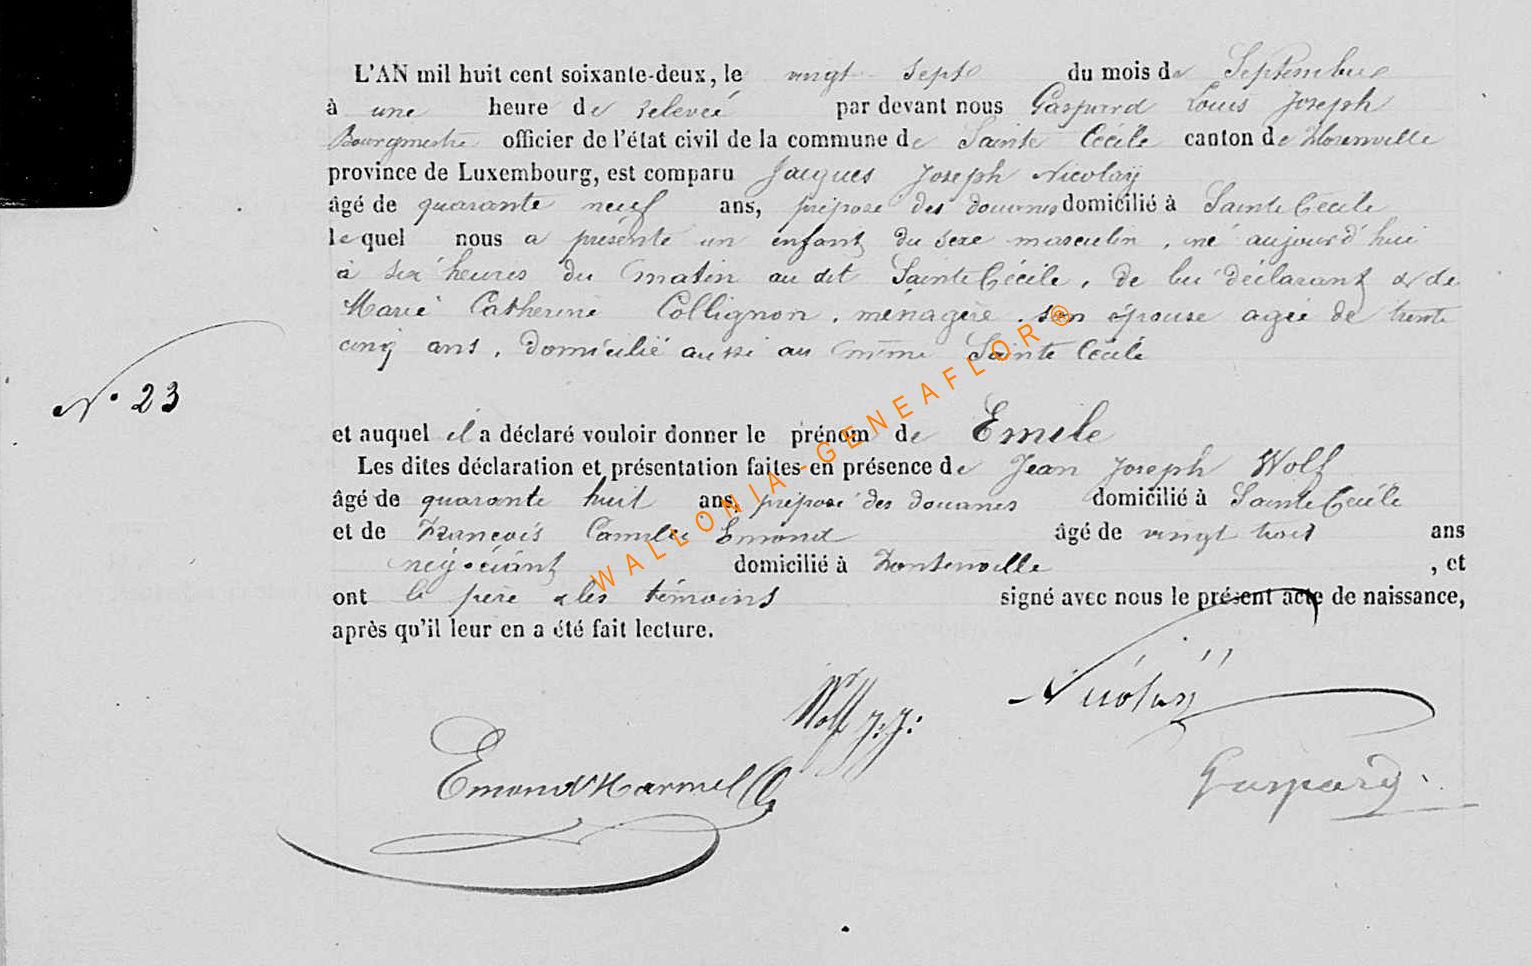 L'AN mil huit cent soixante-deux, le vingt sept du mois de Septembre
à une heure de relevée par devant nous Gaspard Louis Joseph
Bourgmestre officier de l'état civil de la commune de Sainte Cécile canton de Florenville
province de Luxembourg, est comparu Jacques Joseph Nicolaÿ
âgé de quarante neuf ans, préposé des douanes domicilié à Sainte Cécile
lequel nous a présenté un enfant du sexe masculin, né aujourd'hui
à six heures du matin au dit Sainte Cécile, de lui déclarant & de
Marie Catherine Collignon, ménagère, son épouse agée de trente
cinq ans, domicilié aussi au même Sainte Cécile
N° 23
et auquel il a déclaré vouloir donner le prénom de Emile
Les dites déclaration et présentation faites en présence de Jean Joseph Wolf
âgé de quarante huit ans, préposé des douanes domicilié à Sainte Cécile
et de François Camille Emond âgé de vingt trois ans
négociant domicilié à Fontenoille, et
ont le père & les témoins signé avec nous le présent acte de naissance,
après qu'il leur en a été fait lecture.
Wolf J. J.
Nicolaÿ
Emond Harmel
Gaspard
WALLONIA-GENEAFLOR®